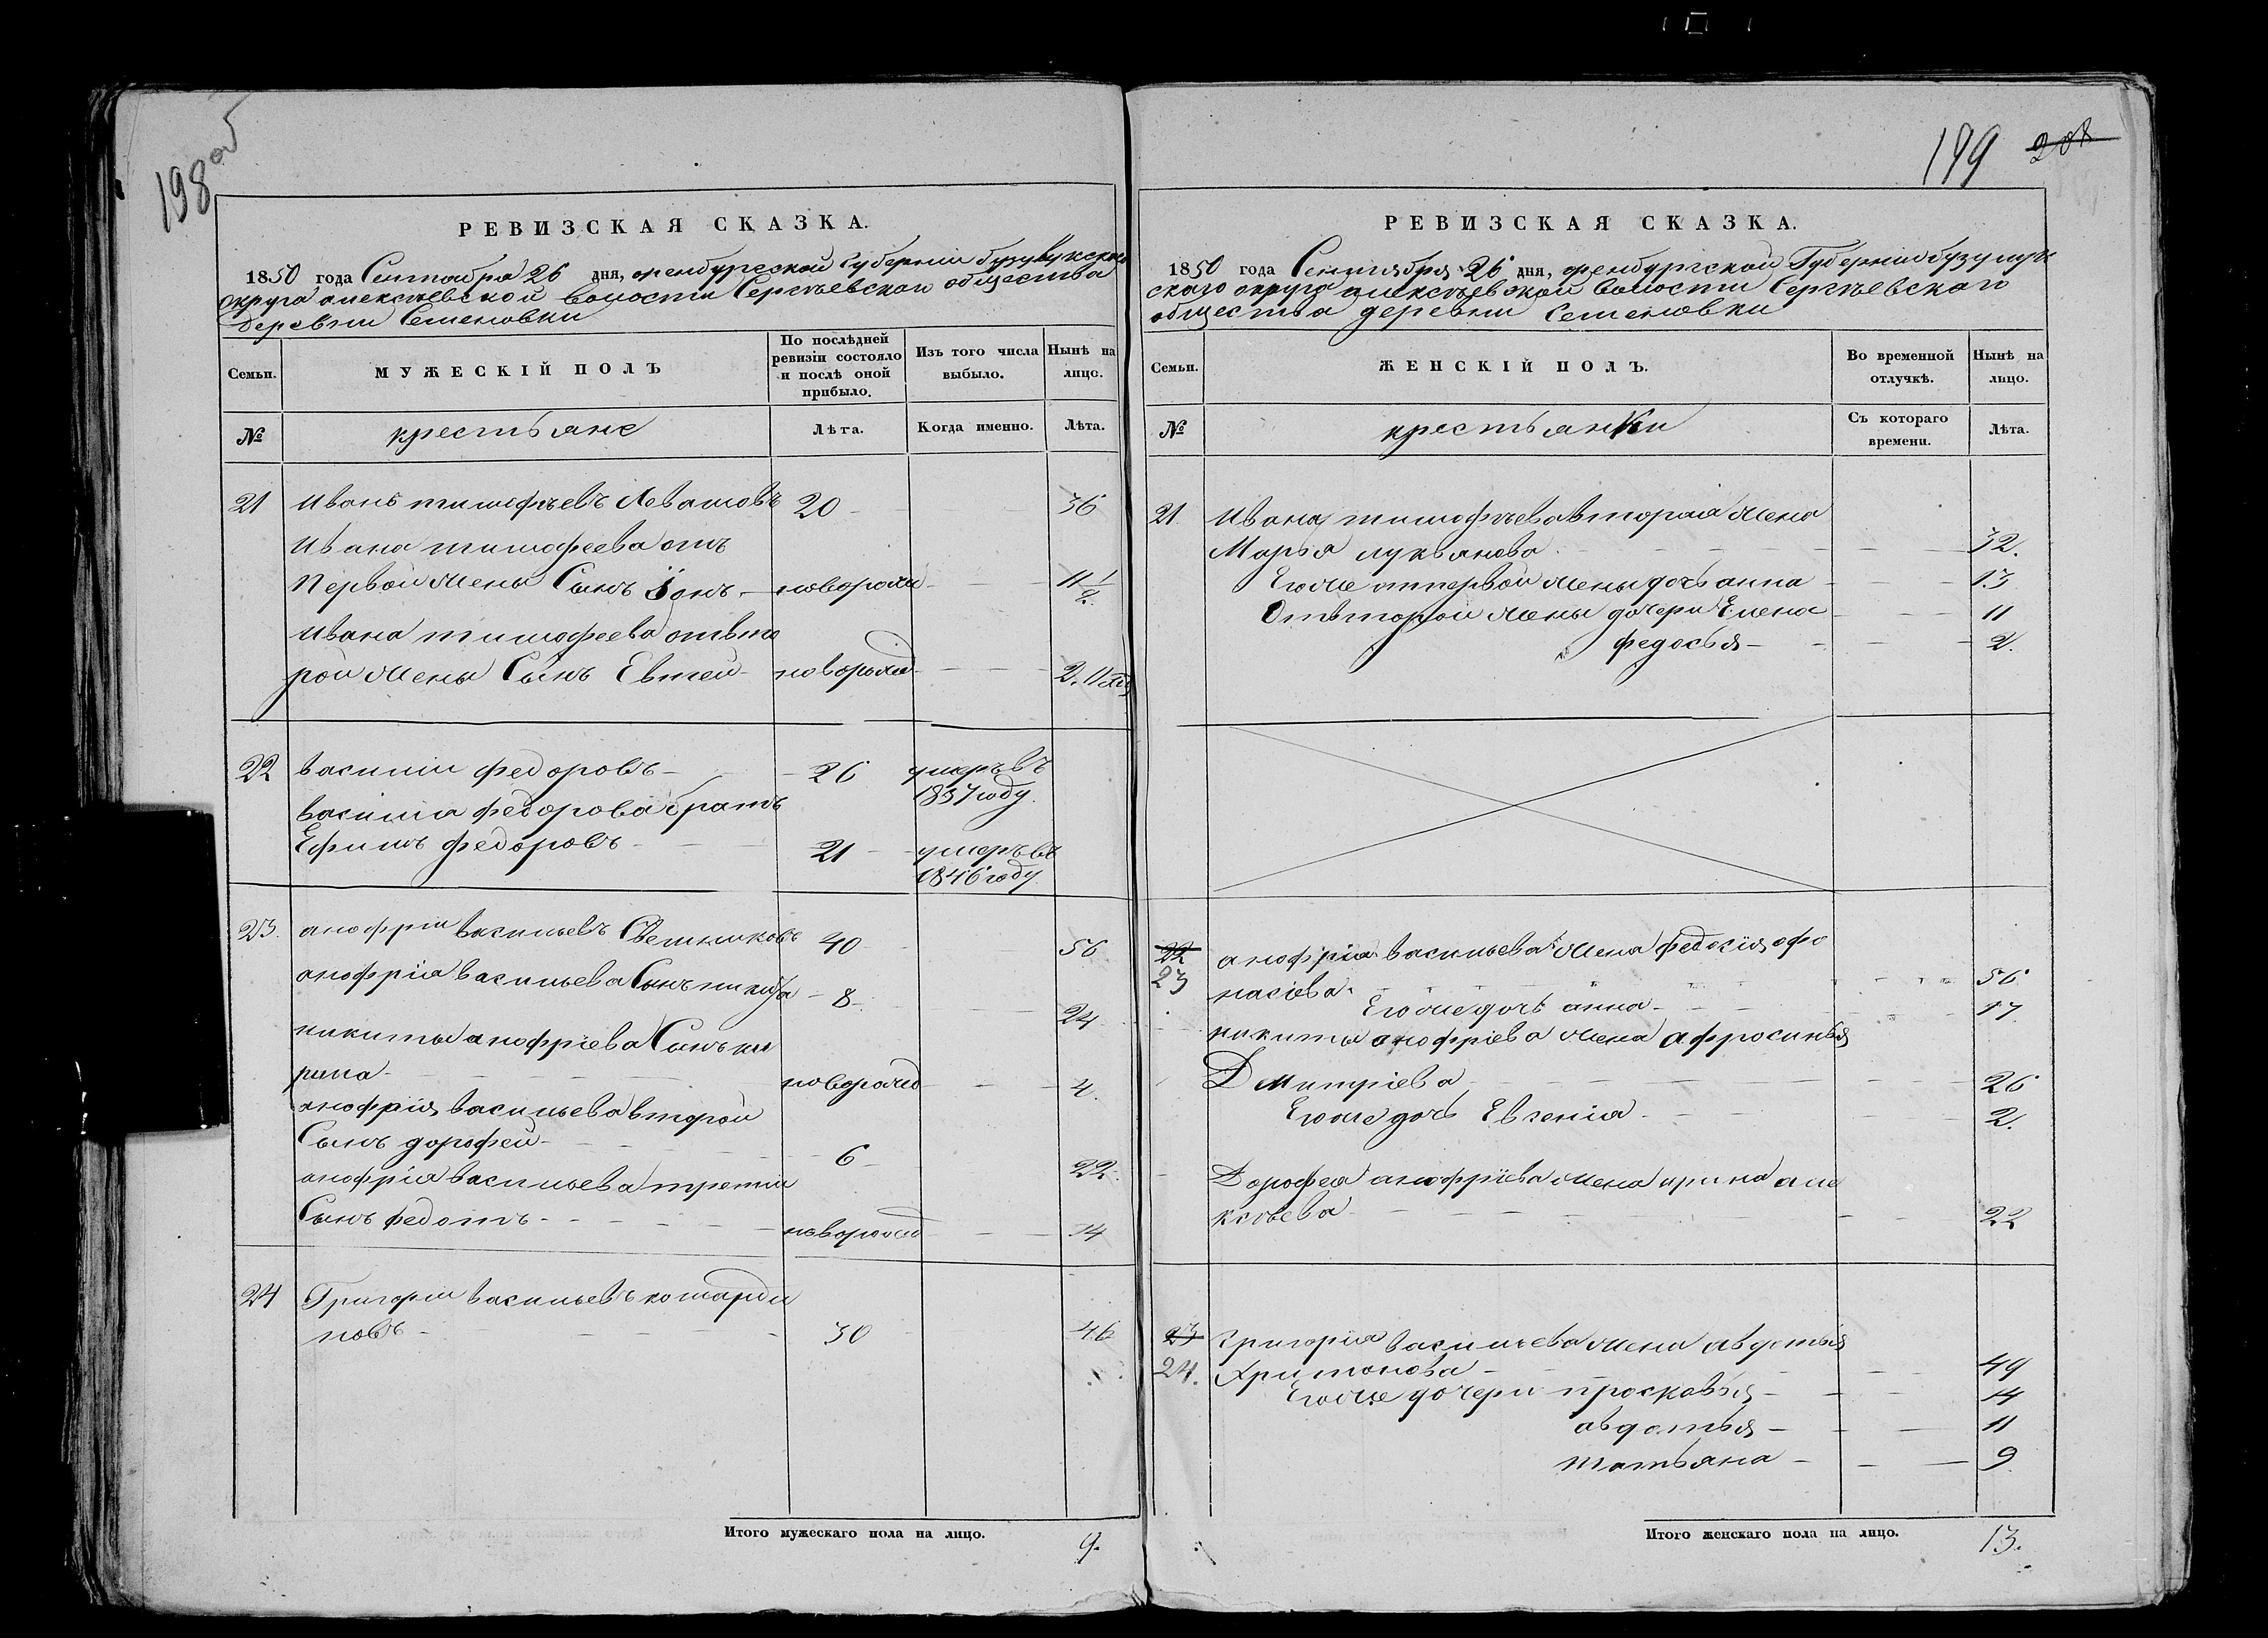 198 об
РЕВИЗСКАЯ СКАЗКА.
1850 года Сентября 26 дня, оренбургской губернии бузулукскаго
округа алексѣевской волости Сергѣевскаго общества
деревни Семеновки
Семьи.
МУЖЕСКІЙ ПОЛЪ
По послѣдней
ревизіи состояло
и послѣ оной
прибыло.
Изъ того числа
выбыло.
Нынѣ на
лицо.
№
крестьяне
Лѣта.
Когда именно.
Лѣта.
21 Иванъ тимофѣевъ Левашовъ 20 36
Ивана тимофеева отъ
первой жены Сынъ Іонъ новорожд 11 1/2
Ивана тимофеева отвто
рой жены Сынъ Евтей новорожд 2. 11
22 василіи федоровъ 26 умеръ въ
1837 году.
василия федорова братъ
Ефимъ федоровъ 21 умеръ въ
1846 году
23. анофріи васильевъ Свешниковъ 40 56
анофрія васильева Сынъ никита 8 24
никиты анофріева Сынъ ки
рила новорожд 4.
анофрія васильева второй
Сынъ дорофей 6 22.
анофрія васильева третій
Сынъ федотъ новорожд 14
24 Григоріи васильевъ
новъ 30 46
Итого мужескаго пола на лицо. 9.
199 208
РЕВИЗСКАЯ СКАЗКА.
1850 года Сентября 26 дня, оренбургской Губерніи бузулук
скаго округа алексѣевской волости Сергѣевскаго
общества деревни Семеновки
Семьи.
ЖЕНСКІЙ ПОЛЪ.
Во временной
отлучкѣ.
Нынѣ на
лицо.
№
крестьянки
Съ котораго
времени.
Лѣта.
21. Ивана тимофѣева вторая жена
Марья лукьянова 32.
Егоже отпервой жены дочь анна 13
Отвторой жены дочери Елена 11
федосья 2.
22
23 анофрія васильева жена федосія афо
насіева. 56
Егоже дочь анна 17
никиты анофріева жена афросинья
Дмитріева 26
Егоже дочь Евгенія 2.
Дорофея анофріева жена ирина але
ксѣева 22
23
24. григорія васильева жена авдотья
Харитонова 49
Егоже дочери просковья 14
авдотья 11
татьяна 9
Итого женскаго пола на лицо. 13.